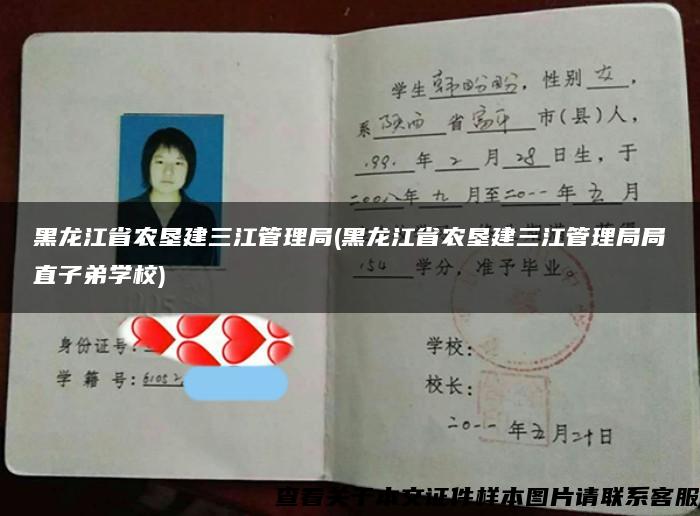 学生韩盼盼，性别女，
系陕西省富平市(县)人，
1991年2月28日生，于
二00八年九月至二0一一年五月
黑龙江省农垦建三江管理局(黑龙江省农垦建三江管理局局
直子弟学校)
154学分，准予毕业。
身份证号:
学籍号:61052
学校:
校长:
二0一一年五月二十日
查看关于本文证件样本图片请联系客服